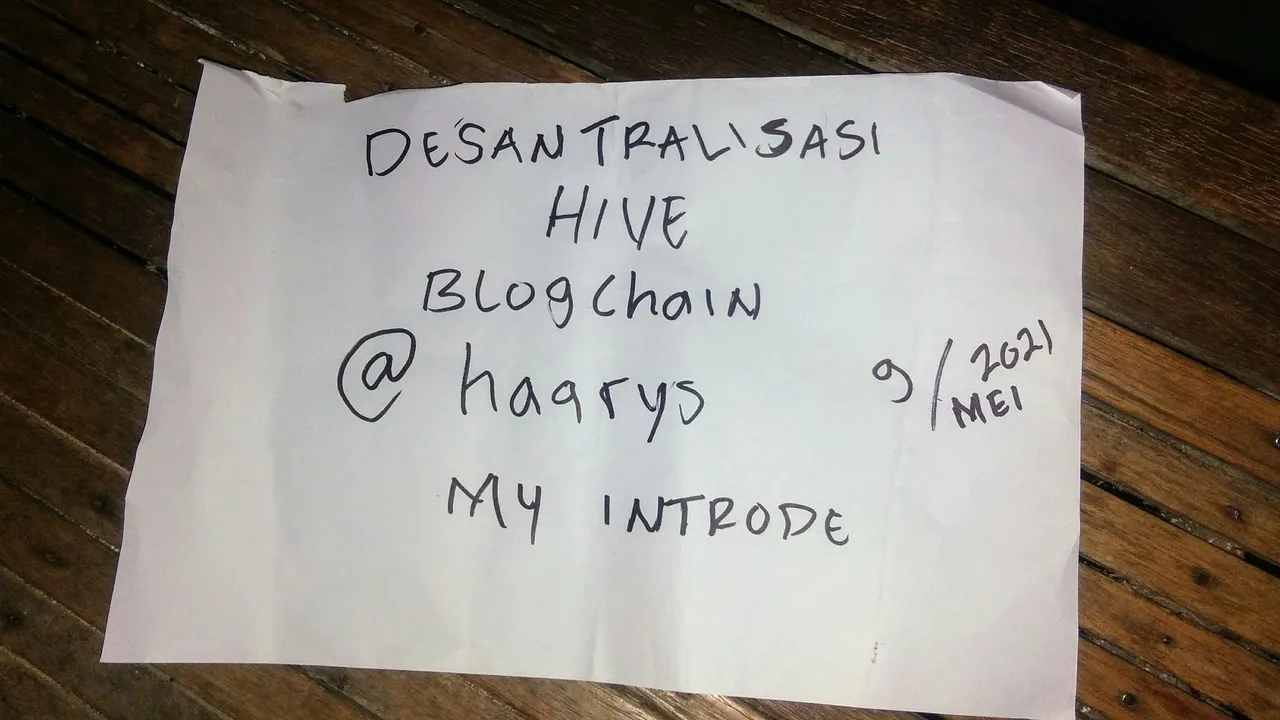 DESANTRALISASI
HIVE
BLogChaIN
@haarys
9/2021
MEI
MY INTRODE